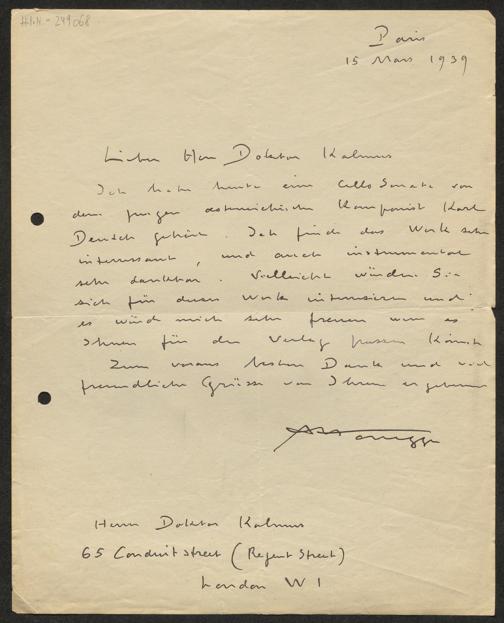 H.I.N. - 249068
Paris
15 Mars 1939
Lieber Herr Doktor Kalmus
Ich habe heute eine Cello Sonate von
dem jungen österreichischen Komponist Karl
Deutsch gehört. Ich finde das Werk sehr
interessant, und auch instrumental
sehr dankbar. Vielleicht würden Sie
sich für dieses Werk interessieren und
es würde mich sehr freuen wenn es
Ihnen für den Verlag passen könnte
Zum voraus besten Dank und viel
freundliche Grüsse von Ihrem ergebenen
AHonegger
Herrn Doktor Kalmus
65 Conduit Street (Regent Street)
London W 1